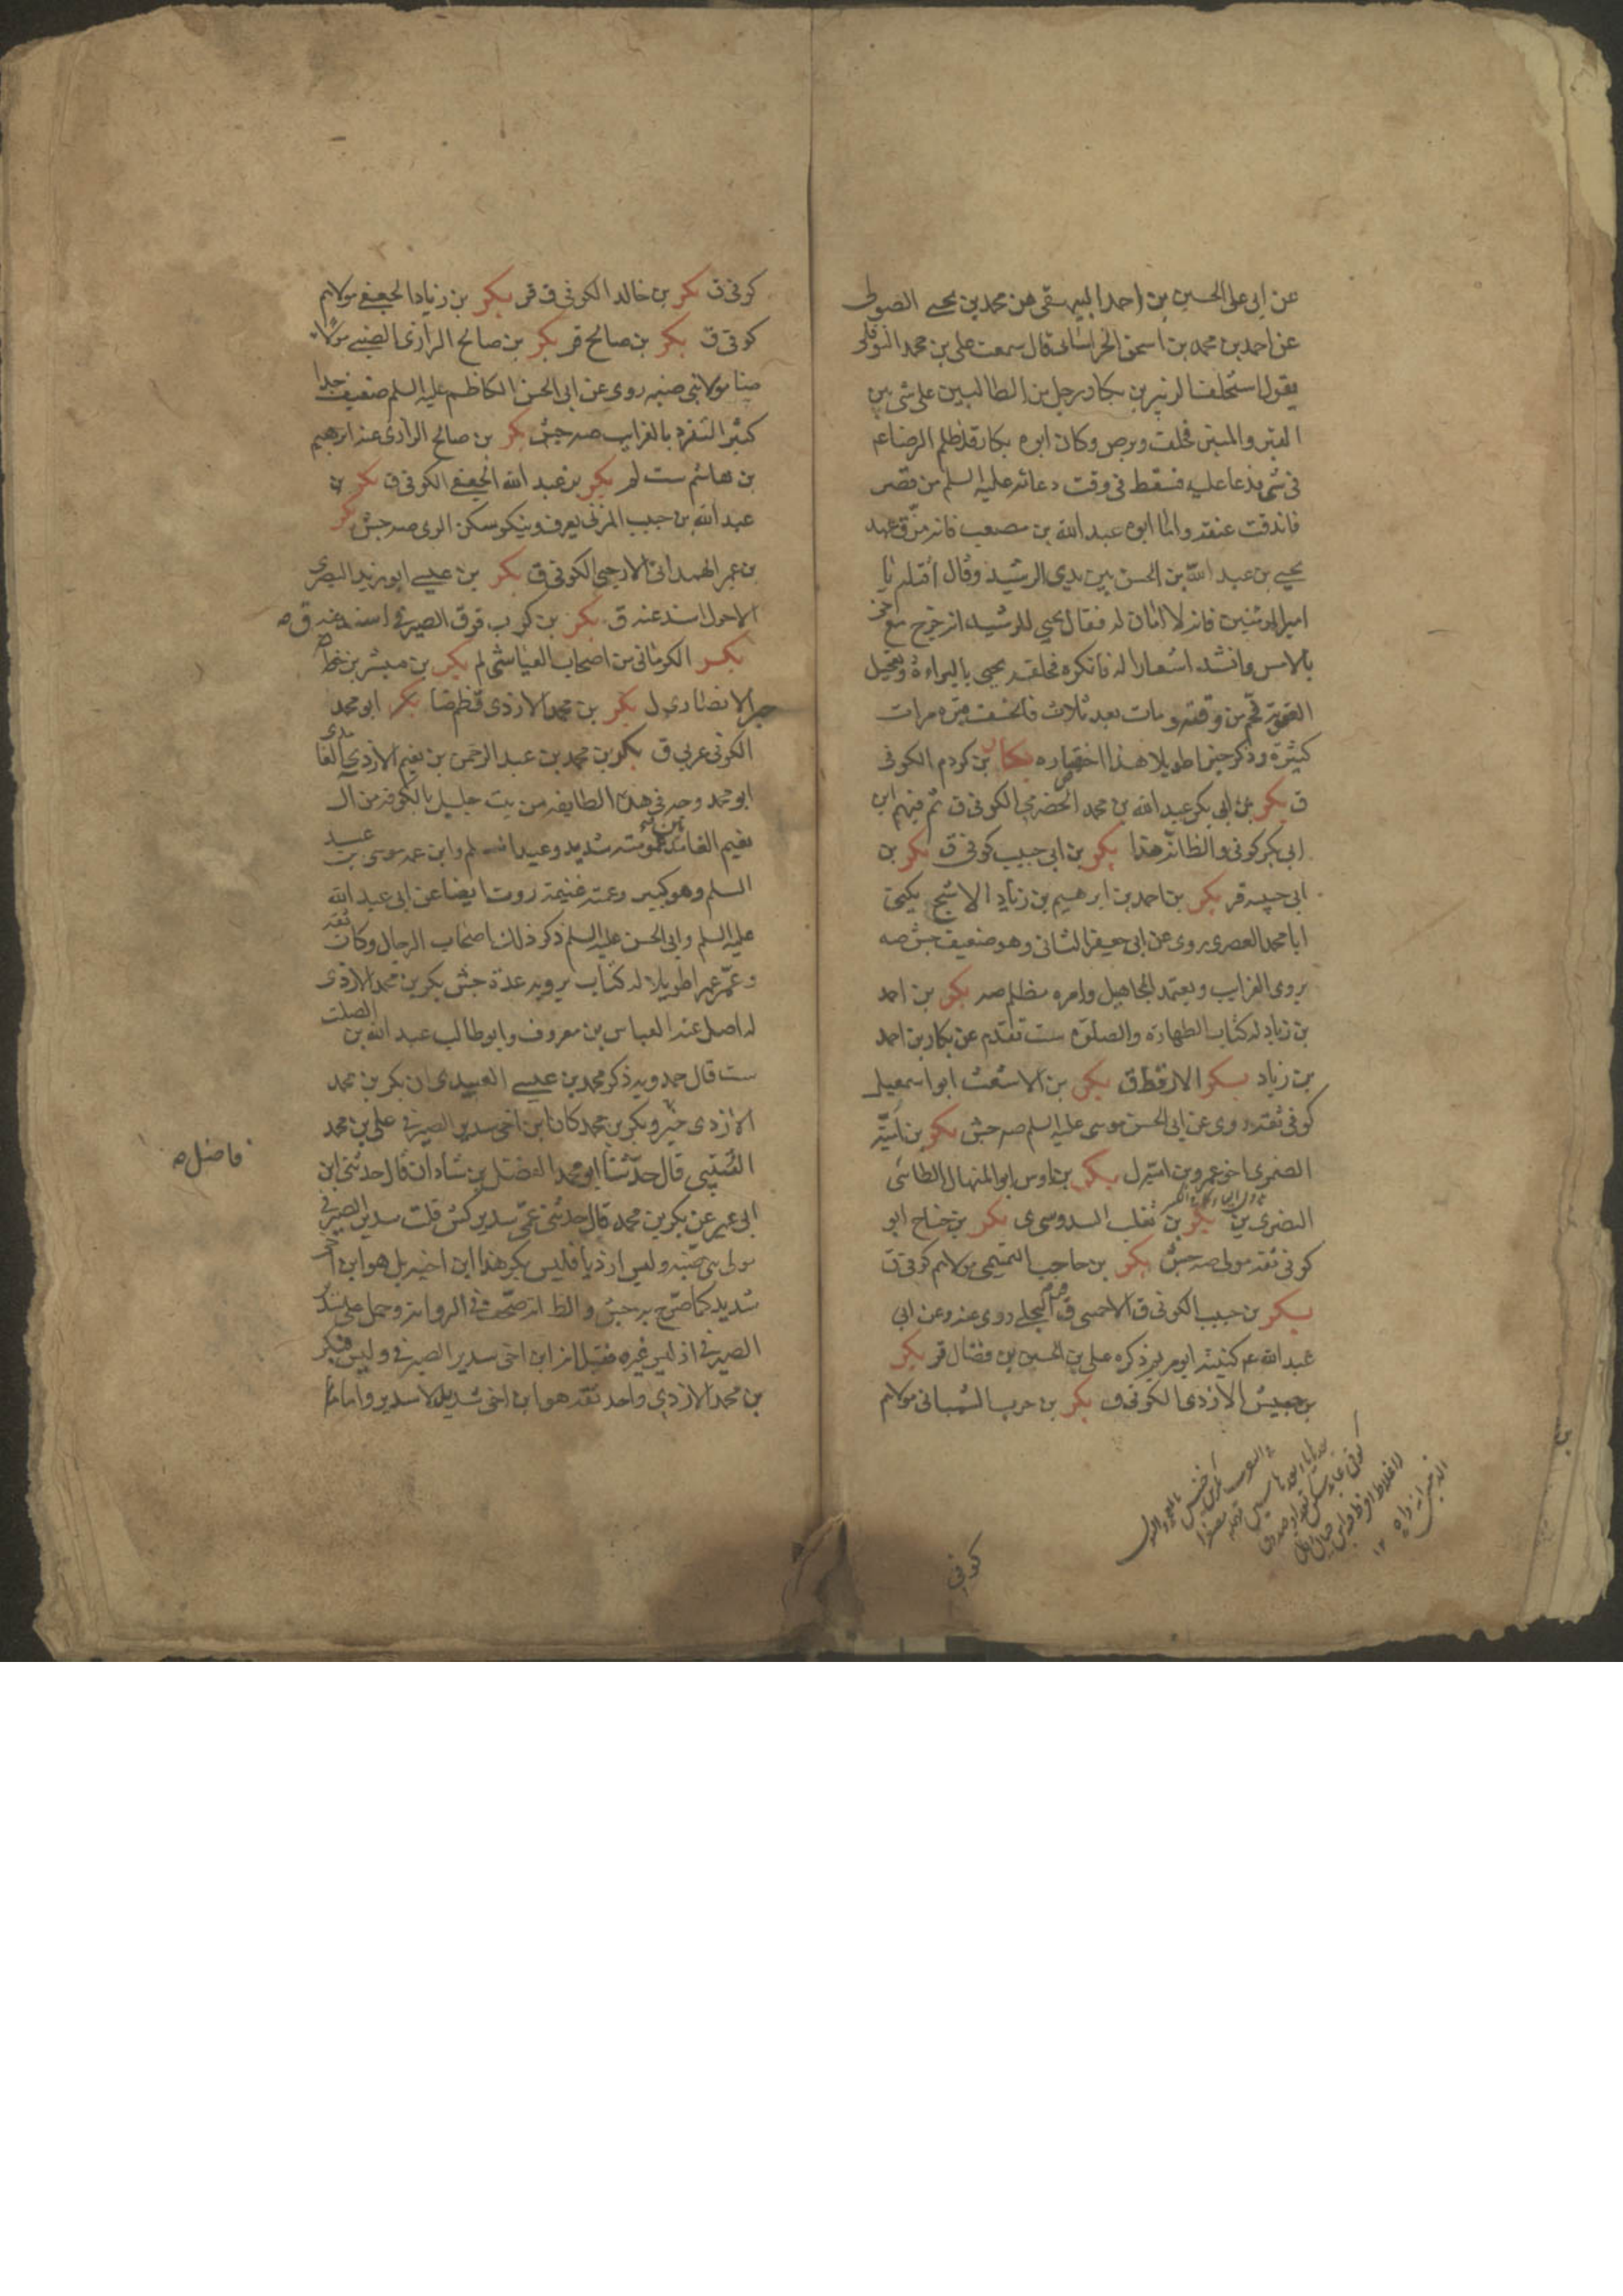 عن ابى على الحسين بن احمد البيهقى عن محمد بن يحيى الصولى
عن احمد بن محمد بن اسحق الخراسانى قال سمعت على بن محمد النوفلى
يقول استحلف الزبير بن بكار رجل من الطالبيين على شى بين
القبر والمنبر فحلف وبرص وكان ابوه بكار قد ظلم الرضا عم
فى شى فدعا عليه فسقط فى وقت دعائه عليه السلم من قصر
فاندقت عنقه واما ابوه عبد الله بن مصعب فانه مزق عهد
يحيى بن عبد الله بن الحسن بين يدى الرشيد وقال اقتله يا
امير المؤمنين فانه لا امان له فقال يحيى للرشيد انه خرج مع اخى
بالامس وانشد اشعارا له فانكره فحلفه يحيى بالبراءة وتعجيل
العقوبة فحم من وقته ومات بعد ثلاث فانخسف قبره مرات
كثيرة وذكر خبرا طويلا هذا اختصاره بكار بن كردم الكوفى
ق بكر بن ابى بكر عبد الله بن محمد الحضرمى الكوفى ق ثم فيهم ابن
ابى بكر كوفى والظ انه هذا بكر بن ابى حبيب كوفى ق بكر بن
ابى حبيبه قر بكر بن احمد بن ابرهيم بن زياد الاشج يكنى
ابا محمد العصرى روى عن ابى جعفر الثانى وهو ضعيف جش صه
يروى الغرايب ويعتمد المجاهيل وامره مظلم صه بكر بن احمد
بن زياد له كتاب الطهارة والصلوة ست تقدم عن بكار بن احمد
بن زياد بكر الارقط ق بكر بن الاشعث ابو اسمعيل
كوفى ثقة روى عن ابى الحسن موسى عليه السلم صه جش بكر بن امية
الضمرى اخو عمرو بن امية ل بكر بن اوس ابو المنهال الطائى
البصرى ين بكر بن تغلب السدوسى ى بكر بن جناح ابو
كوفى ثقة مولى صه جش بكر بن حاجب التميمى مولاهم كوفى ق
بكر بن حبيب الكوفى ق الاحمسى ق قر البجلى روى عنه وعن ابى
عبد الله عم كنيته ابو مريم ذكره على بن الحسين بن فضال قر بكر
بن حبيش الازدى الكوفى ق بكر بن حرب الشيبانى مولاهم
كوفى
كوفى ق بكر بن خالد الكوفى ق قر بكر بن زياد الجعفى مولاهم
كوفى ق بكر بن صالح قر بكر بن صالح الرازى الضبى مولاه
ضا مولا بنى ضبه روى عن ابى الحسن الكاظم عليه السلم ضعيف جدا
كثير التفرد بالغرايب صه جش بكر بن صالح الرازى عنه ابرهيم
بن هاشم ست لم بكر بن عبد الله الجعفى الكوفى ق بكر بن
عبد الله بن حبيب المزنى يعرف وينكر سكن الرى صه جش بكر
بن عمر الهمدانى الارحبى الكوفى ق بكر بن عيسى ابو زيد البصرى
الاحول اسند عنه ق بكر بن كرب ق قر الصيرفى اسند عنه ق صه
بكر الكرمانى من اصحاب العياشى لم بكر بن مبشر بن خط
جبر الانصارى ل بكر بن محمد الازدى ق ظم ضا بكر ابو محمد
الكوفى عربى ق بكر بن محمد بن عبد الرحمن بن نعيم الازدى الغامدى
ابو محمد وجه فى هذه الطايفه من بيت جليل بالكوفه من ال
نعيم الغامدين عمومته شديد وعبد السلم وابن عمه موسى بن عبد
السلم وهو كبير وعمته غنيمة روت ايضا عن ابى عبد الله
عليه السلم وابى الحسن عليه السلم ذكر ذلك اصحاب الرجال وكان ثقه
وعمر عمرا طويلا له كتاب يرويه عدة جش بكر بن محمد الازدى
له اصل عنه العباس بن معروف وابو طالب عبد الله بن الصلت
ست قال حمدويه ذكر محمد بن عيسى العبيدى ان بكر بن محمد
الازدى خير وبكر بن محمد كان ابن اخى سدير الصيرفى على بن محمد
القتيبى قال حدثنا ابو محمد الفضل بن شاذان قال حدثنى ابن
ابى عمير عن بكر بن محمد قال حدثنى عمى سدير كش قلت سدير الصيرفى
مولى بنى ضبه وليس ازديا فليس بكر هذا ابن اخيه بل هو ابن اخ
شديد كما صرح به جش والظ انه صحف فى الروايه وحمل على سدير
الصيرفى اذ ليس غيره فقيل انه ابن اخى سدير الصيرفى وليس فبكر
بن محمد الازدى واحد ثقه هو ابن اخى شديد لا سدير واما ما
فاضل صه